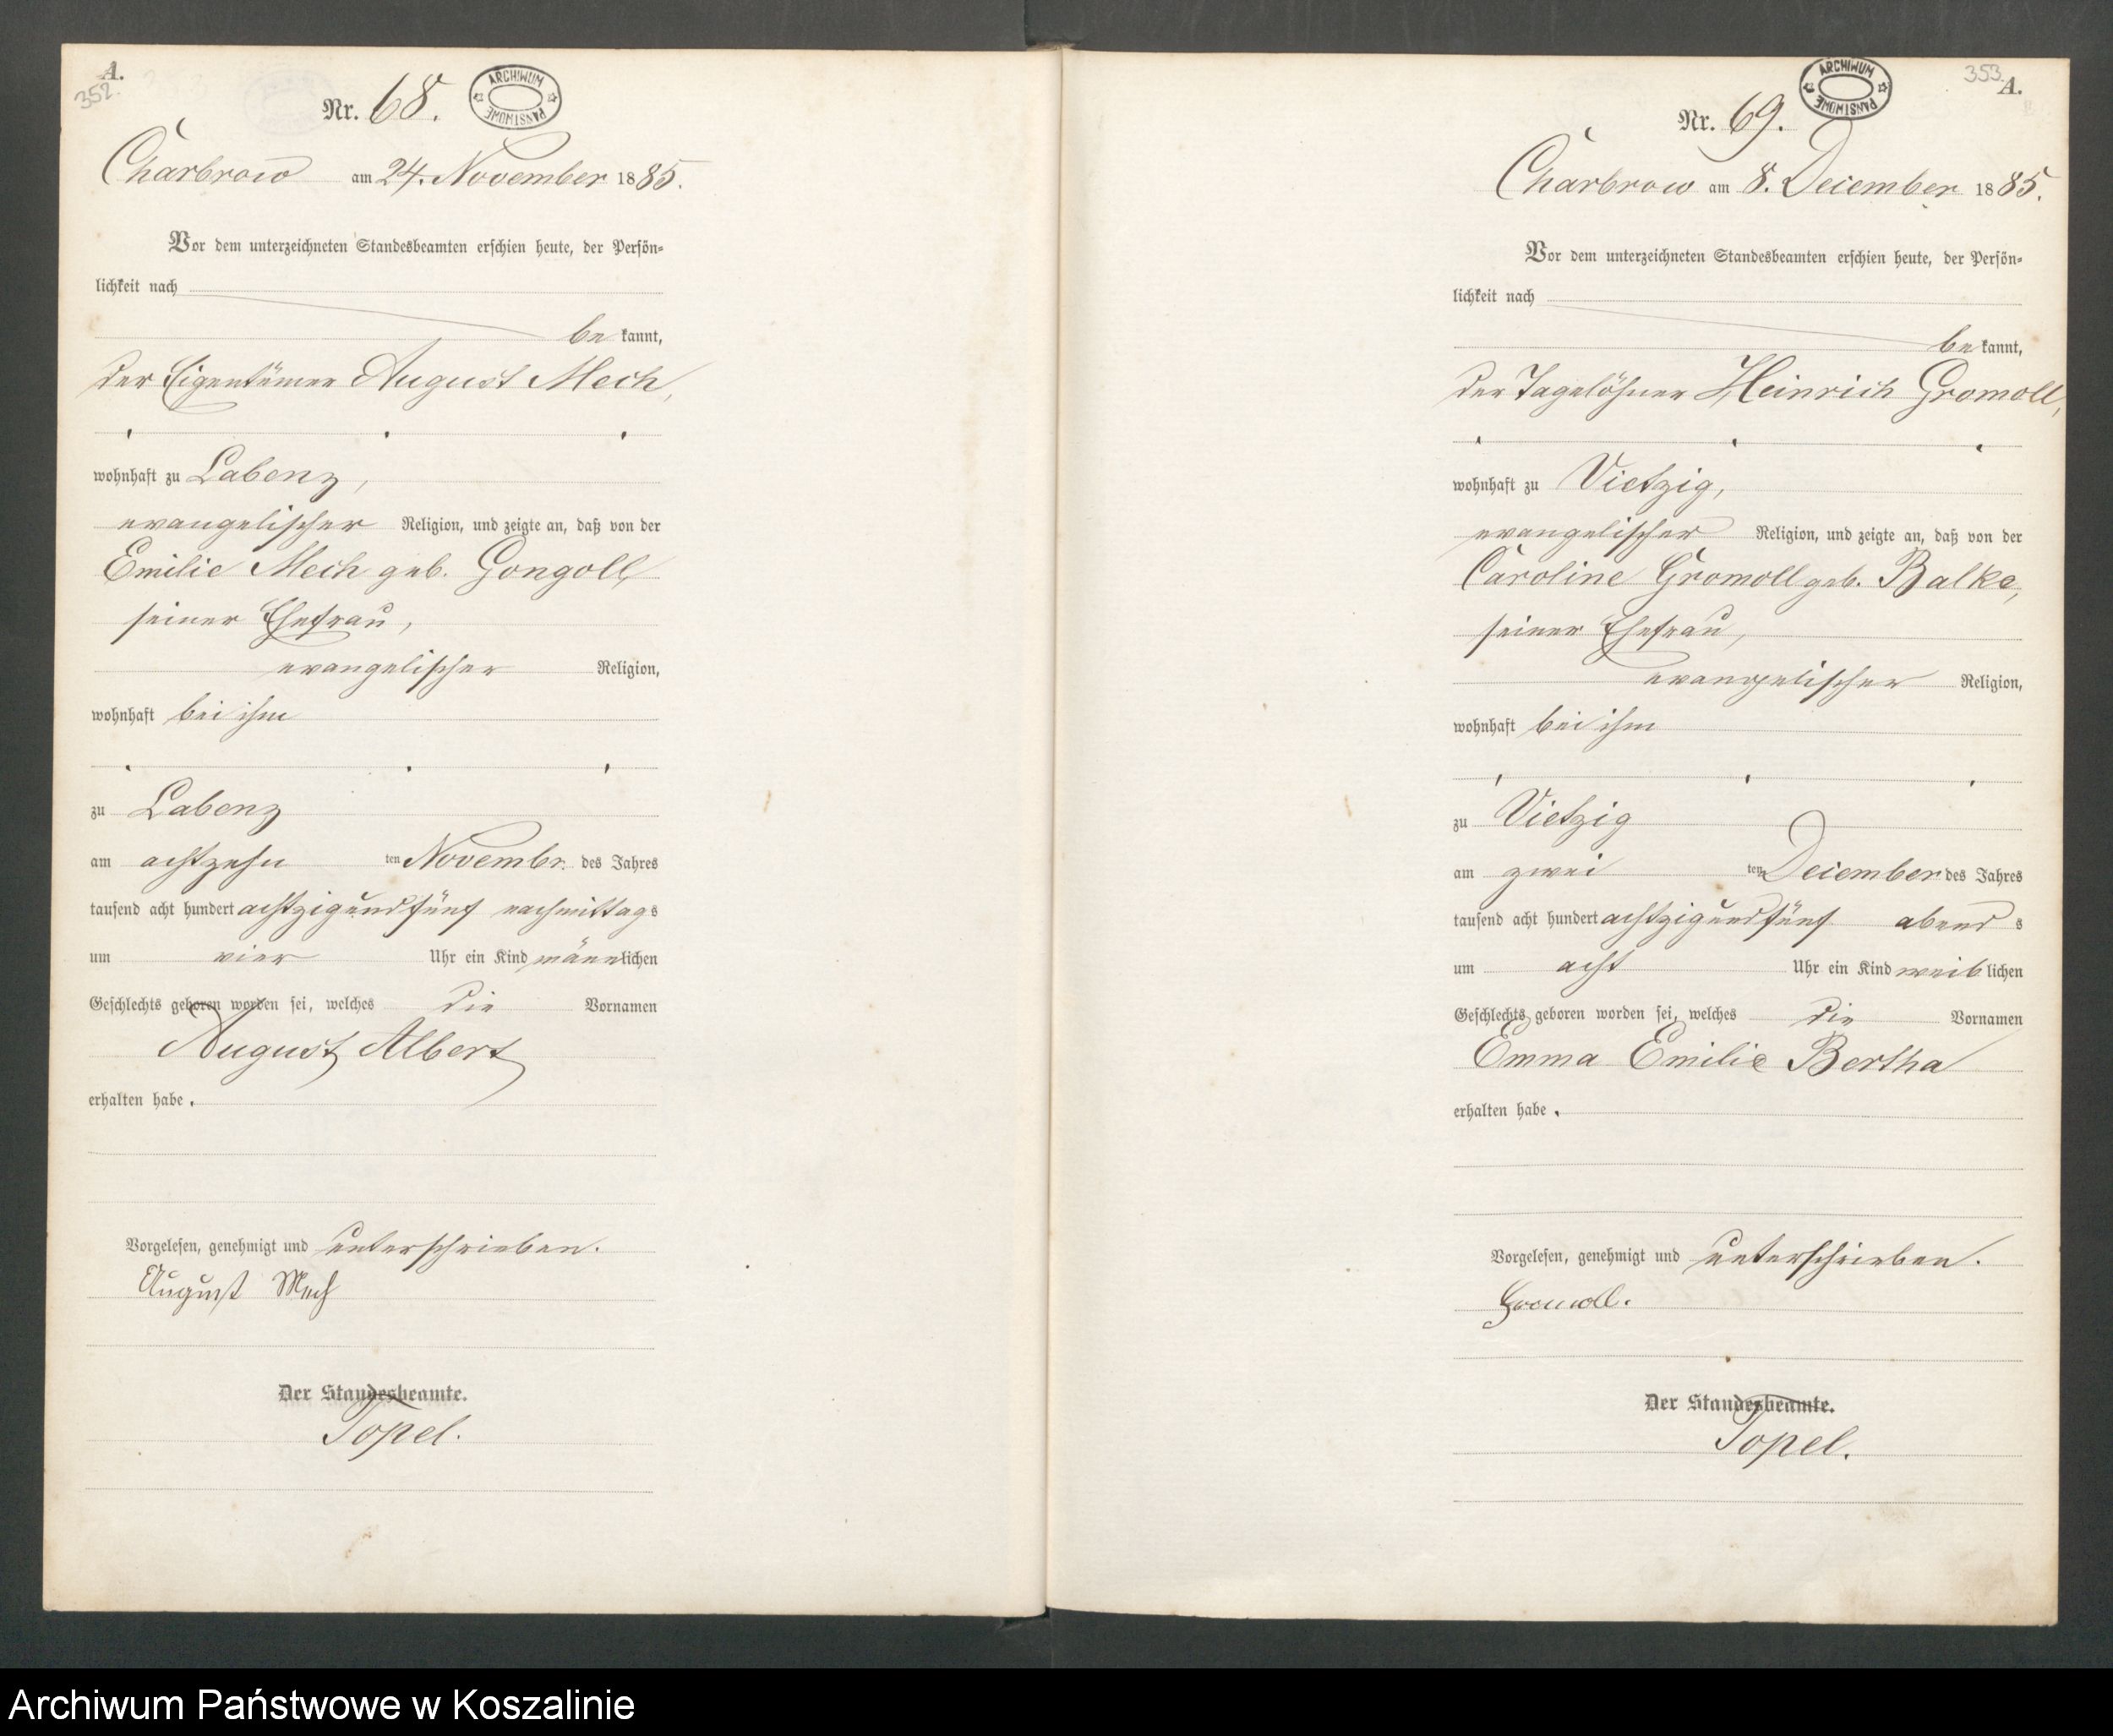 A.
352.
Nr. 68.
ARCHIWUM PAŃSTWOWE
Charbrow am 24. November 1885.
Vor dem unterzeichneten Standesbeamten erschien heute, der Persön-
lichkeit nach
be kannt,
der Eigentümer August Mech,
wohnhaft zu Labenz,
evangelischer Religion, und zeigte an, daß von der
Emilie Mech geb. Gongoll,
seiner Ehefrau,
evangelischer Religion,
wohnhaft bei ihm
zu Labenz
am achtzehn ten Novembr. des Jahres
tausend acht hundert achtzigundfünf nachmittags
um vier Uhr ein Kind männlichen
Geschlechts geboren worden sei, welches die Vornamen
August Albert
erhalten habe.
Vorgelesen, genehmigt und unterschrieben.
August Mech
Der Standesbeamte.
Topel.
353.
A.
Nr. 69.
ARCHIWUM PAŃSTWOWE
Charbrow am 8. December 1885.
Vor dem unterzeichneten Standesbeamten erschien heute, der Persön-
lichkeit nach
be kannt,
der Tagelöhner Heinrich Gromoll,
wohnhaft zu Vietzig,
evangelischer Religion, und zeigte an, daß von der
Caroline Gromoll geb. Balke,
seiner Ehefrau,
evangelischer Religion,
wohnhaft bei ihm
zu Vietzig
am zwei ten December des Jahres
tausend acht hundert achtzigundfünf abend s
um acht Uhr ein Kind weiblichen
Geschlechts geboren worden sei, welches die Vornamen
Emma Emilie Bertha
erhalten habe.
Vorgelesen, genehmigt und unterschrieben.
Gromoll.
Der Standesbeamte.
Topel.
Archiwum Państwowe w Koszalinie